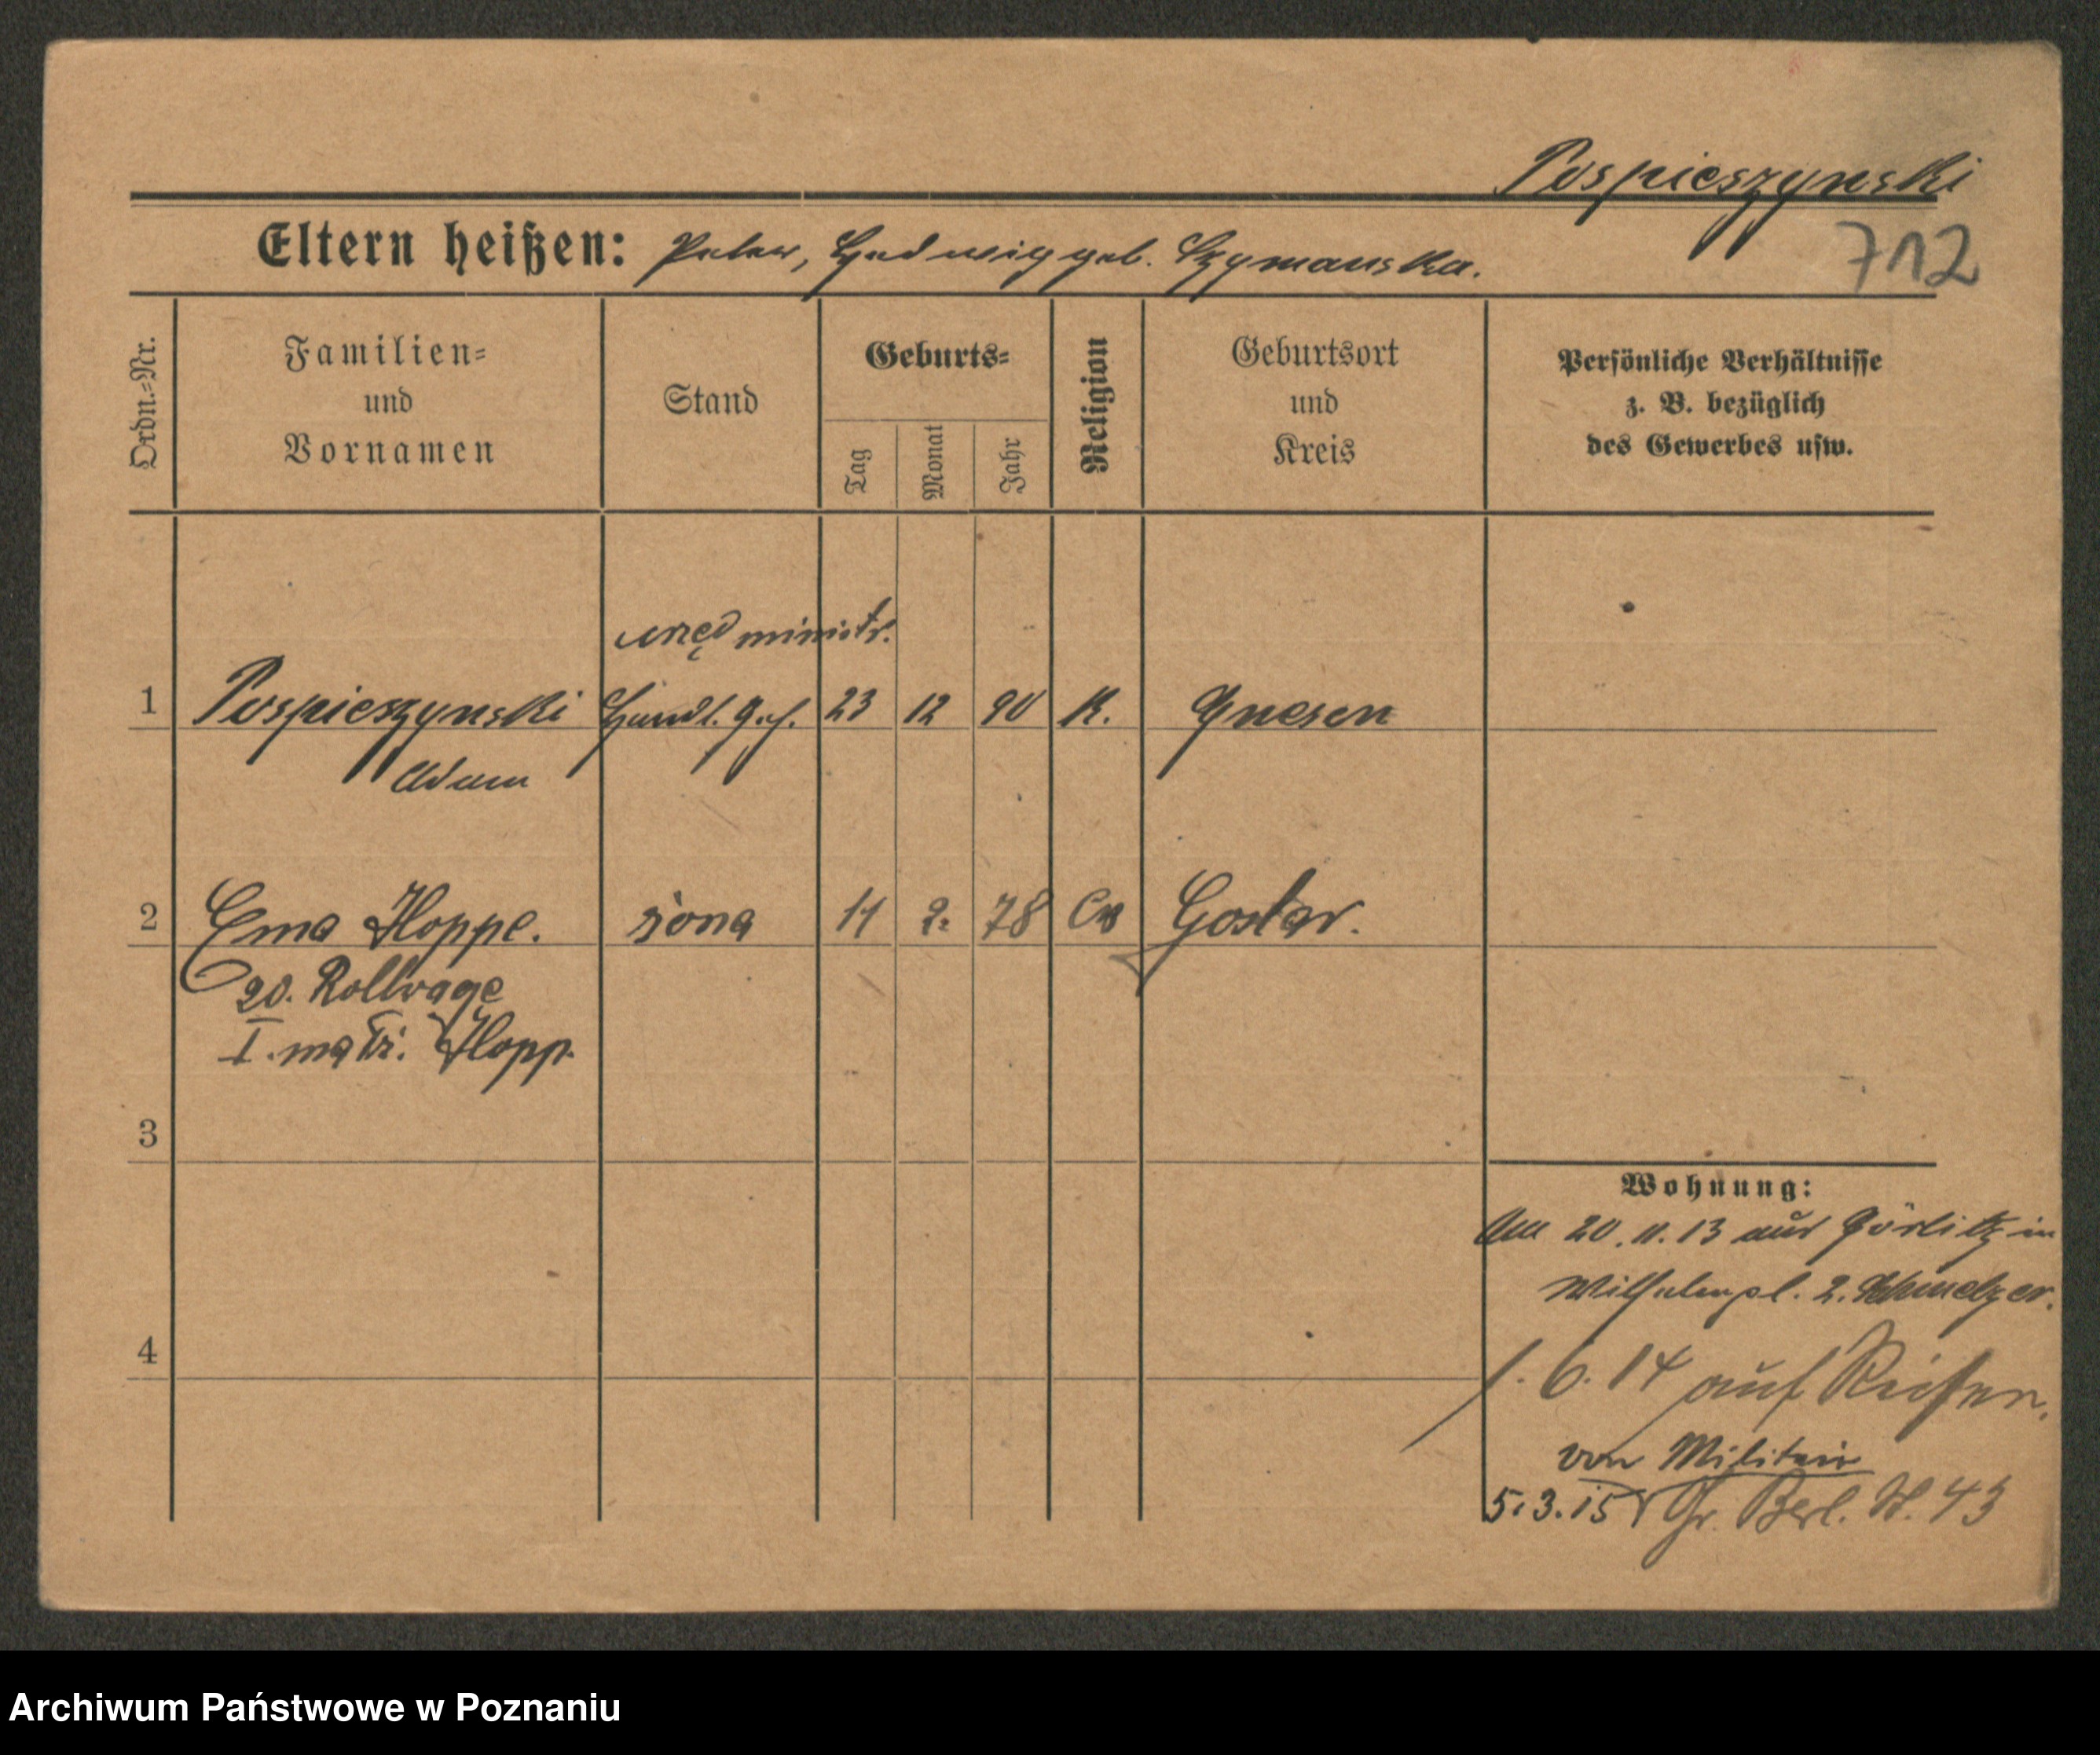 Pospieszynski
712
Eltern heißen: Peter, Hedwig geb. Szymanska.
Ordn.=Nr.
Familien=
und
Vornamen
Stand
Geburts=
Tag
Monat
Jahr
Religion
Geburtsort
und
Kreis
Persönliche Verhältnisse
z. B. bezüglich
des Gewerbes usw.
urzęd ministr.
1 Pospieszynski Handl. Geh. 23 12 90 K. Gnesen
Adam
2 Ema Hoppe. żona 11 2. 78 Ew Goslar.
zd. Rollwage
I. matż. Hopp.
3
4
Wohnung:
Am 20.11.13 aus Görlitz in
Wilhelmpl. 2. Schmelzer.
1. 6. 14 auf Reisen.
von Militair
5.3.15 Gr. Berl. St. 43
Archiwum Państwowe w Poznaniu